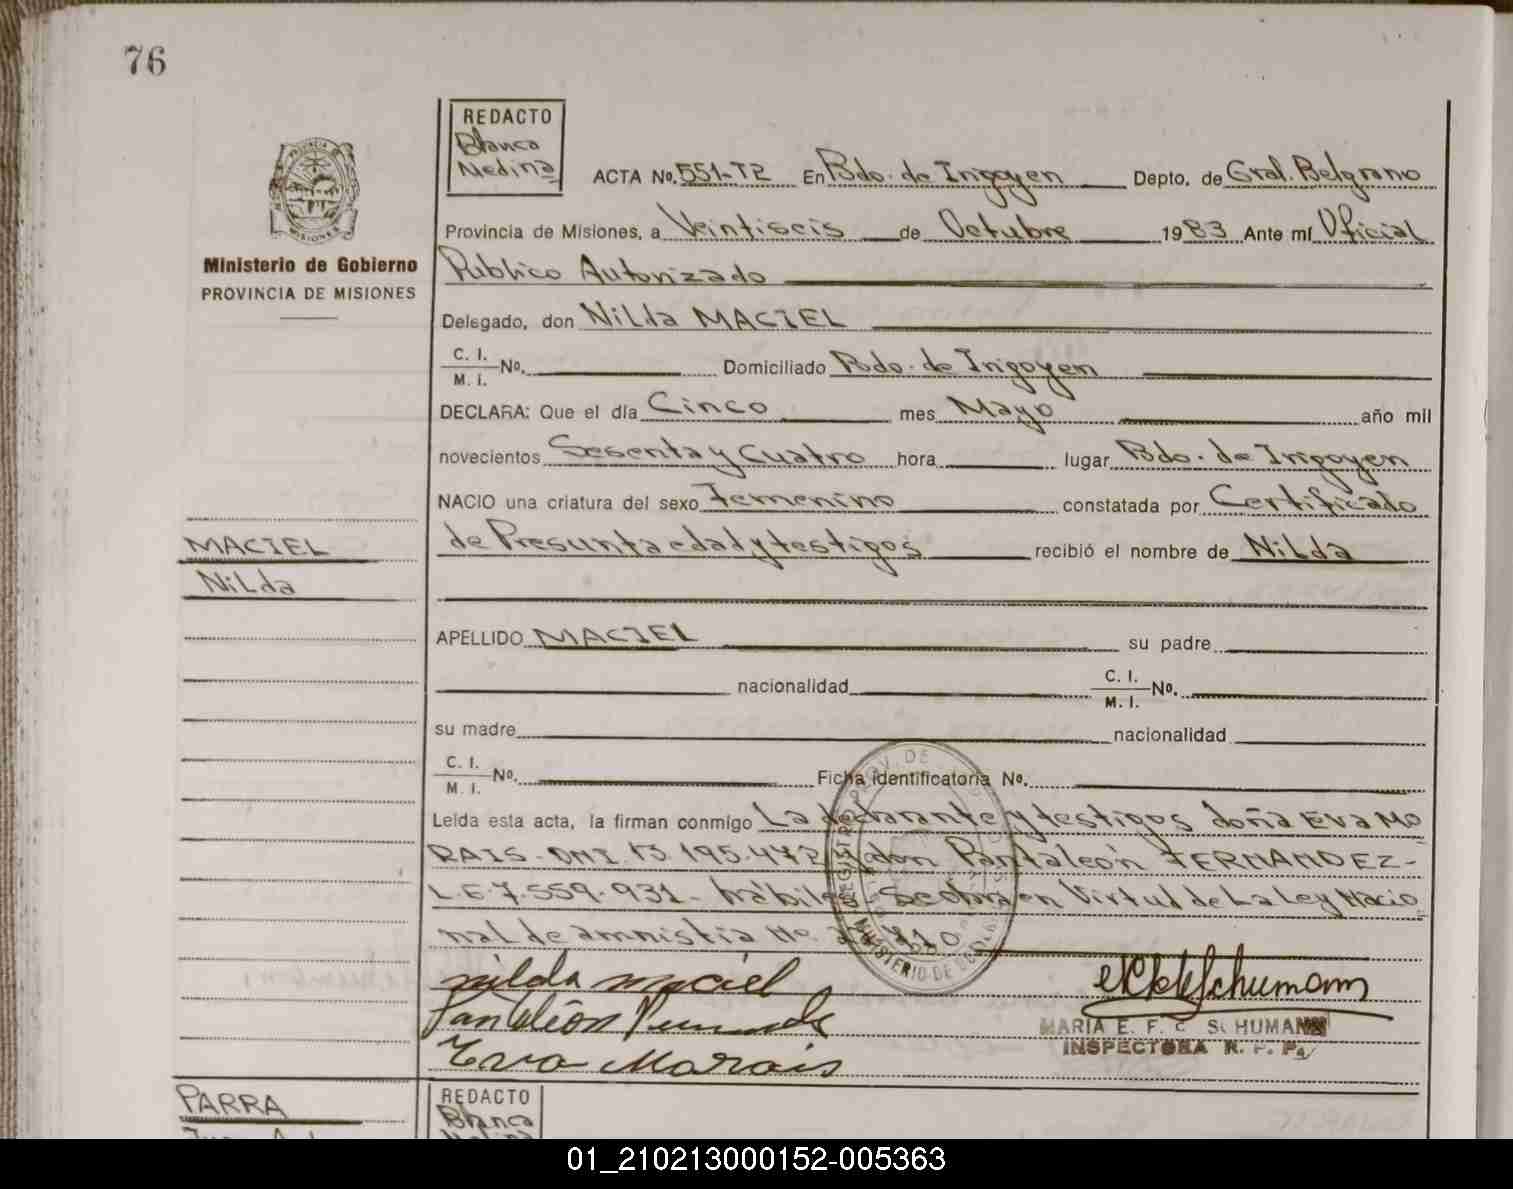 76
REDACTO
Blanca
Medina
PROVINCIA DE
MISIONES
Ministerio de Gobierno
PROVINCIA DE MISIONES
ACTA No. 551-T2 En Bdo. de Irigoyen Depto. de Gral. Belgrano
Provincia de Misiones, a Veintiseis de Octubre 1983 Ante mí Oficial
Publico Autorizado
Delegado, don Nilda MACIEL
C. I.
M. I. No. Domiciliado Bdo. de Irigoyen
DECLARA: Que el día Cinco mes Mayo año mil
novecientos Sesenta y Cuatro hora lugar Bdo. de Irigoyen
NACIO una criatura del sexo Femenino constatada por Certificado
MACIEL
de Presunta edad y testigos recibió el nombre de Nilda
Nilda
APELLIDO MACIEL su padre
nacionalidad C. I.
M. I. No.
su madre nacionalidad
C. I.
M. I. No. Ficha identificatoria No.
Leída esta acta, la firman conmigo La declarante y testigos doña Eva MO
RAIS. DNI. 13.195.472 y don Pantaleón FERNANDEZ-
L.E 7.559.931- hábiles- Se obra en Virtud de La Ley Nacio
nal de amnistia No.
nilda maciel
Pantaleón
Eva Morais
MARIA E. F. SCHUMANN
INSPECTORA R. P. P.
PARRA
REDACTO
Blanca
Medina
01_210213000152-005363